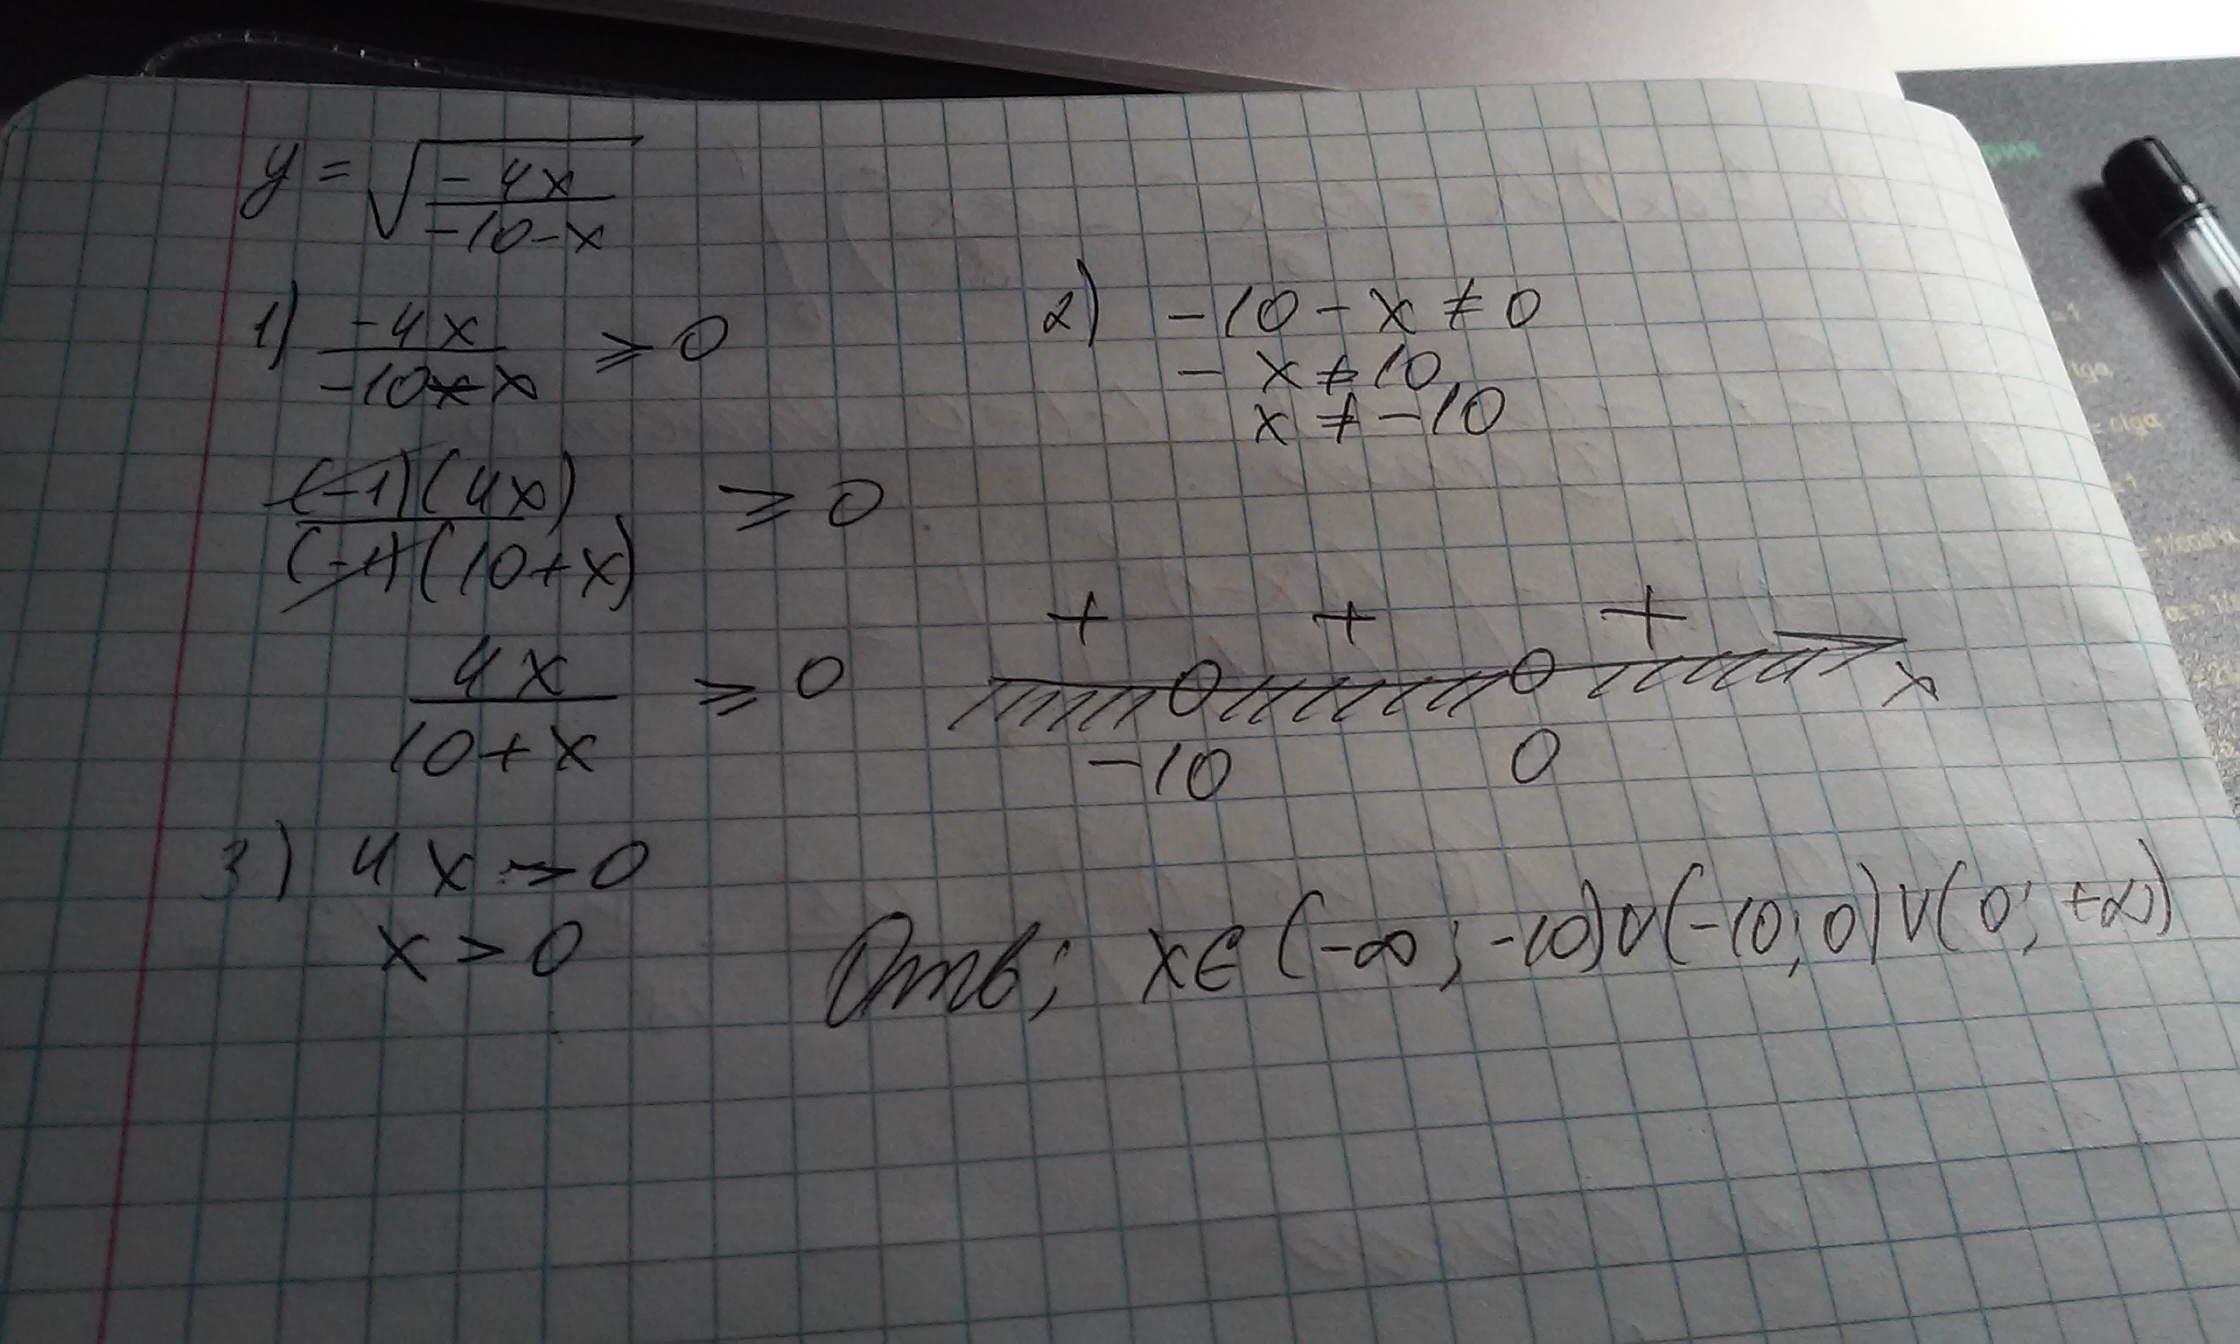 y = √(-4x / -10-x)
1) -4x / -10-x ≥ 0
(-1)(4x) / (-1)(10+x) ≥ 0
4x / 10+x ≥ 0
2) -10-x ≠ 0
- x ≠ 10
x ≠ -10
+ + +
-10 0 x
3) 4x > 0
x > 0
Отв; x∈(-∞; -10)∪(-10; 0)∪(0; +∞)